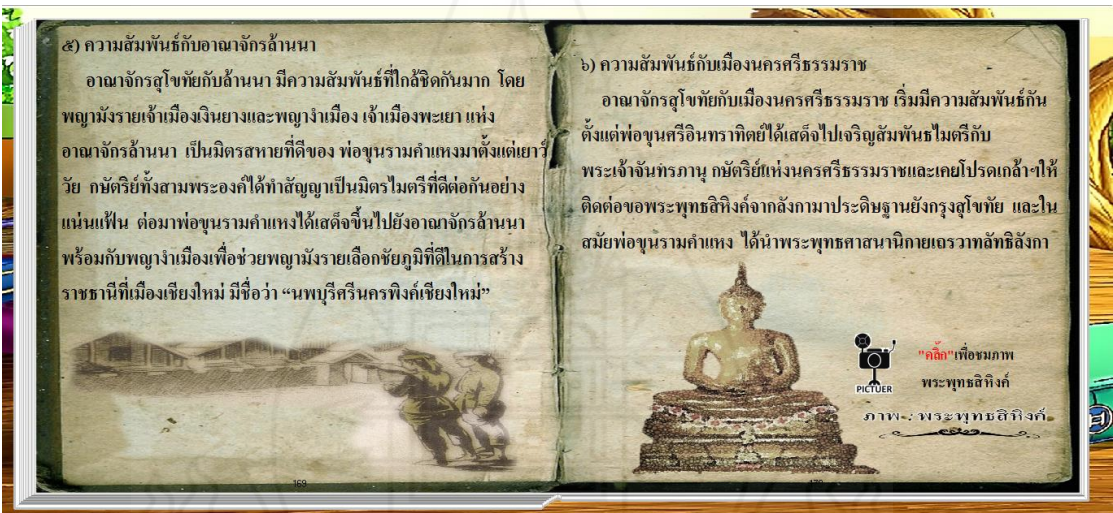 ๕) ความสัมพันธ์กับอาณาจักรล้านนา
อาณาจักรสุโขทัยกับล้านนา มีความสัมพันธ์ที่ใกล้ชิดกันมาก โดย
พญามังรายเจ้าเมืองเงินยางและพญางำเมือง เจ้าเมืองพะเยา แห่ง
อาณาจักรล้านนา เป็นมิตรสหายที่ดีของ พ่อขุนรามคำแหงมาตั้งแต่เยาว์
วัย กษัตริย์ทั้งสามพระองค์ได้ทำสัญญาเป็นมิตรไมตรีที่ดีต่อกันอย่าง
แน่นแฟ้น ต่อมาพ่อขุนรามคำแหงได้เสด็จขึ้นไปยังอาณาจักรล้านนา
พร้อมกับพญางำเมืองเพื่อช่วยพญามังรายเลือกชัยภูมิที่ดีในการสร้าง
ราชธานีที่เมืองเชียงใหม่ มีชื่อว่า “นพบุรีศรีนครพิงค์เชียงใหม่”
169
๖) ความสัมพันธ์กับเมืองนครศรีธรรมราช
อาณาจักรสุโขทัยกับเมืองนครศรีธรรมราช เริ่มมีความสัมพันธ์กัน
ตั้งแต่พ่อขุนศรีอินทราทิตย์ได้เสด็จไปเจริญสัมพันธไมตรีกับ
พระเจ้าจันทรภานุ กษัตริย์แห่งนครศรีธรรมราชและเคยโปรดเกล้าฯให้
ติดต่อขอพระพุทธสิหิงค์จากลังกามาประดิษฐานยังกรุงสุโขทัย และใน
สมัยพ่อขุนรามคำแหง ได้นำพระพุทธศาสนานิกายเถรวาทลัทธิลังกา
"คลิ๊ก"เพื่อชมภาพ
พระพุทธสิหิงค์
PICTUER
ภาพ : พระพุทธสิหิงค์
170